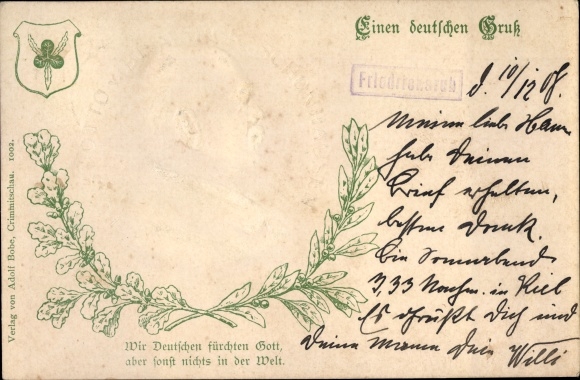 Einen deutschen Gruß
Friedrichsruh
d. 10/12 08.
Meine liebe
habe Deinen
Brief erhalten,
besten Dank.
Bin Sonnabend
7,33 Nachm. in Kiel
Es grüßt Dich und
Deine Mama Dein Willi
Verlag von Adolf Bohe, Crimmitschau. 1002.
Wir Deutschen fürchten Gott,
aber sonst nichts in der Welt.